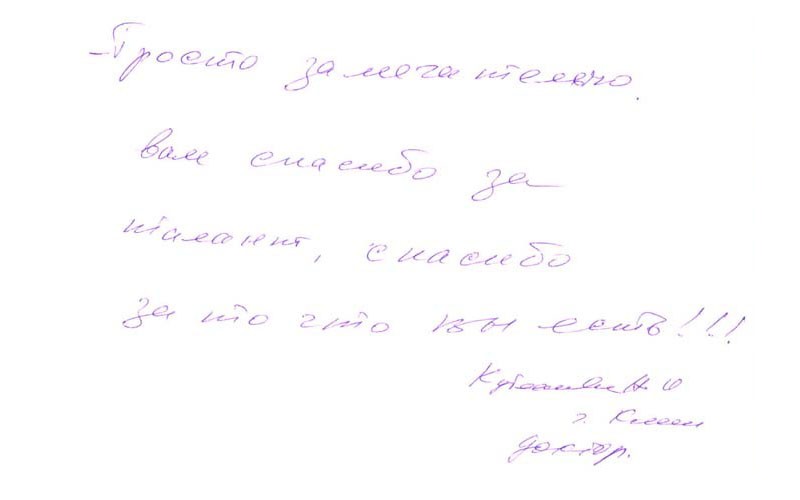 Просто замечательно.
вам спасибо за
талант, спасибо
за то что вы есть!!!
г. Клин
доктор.